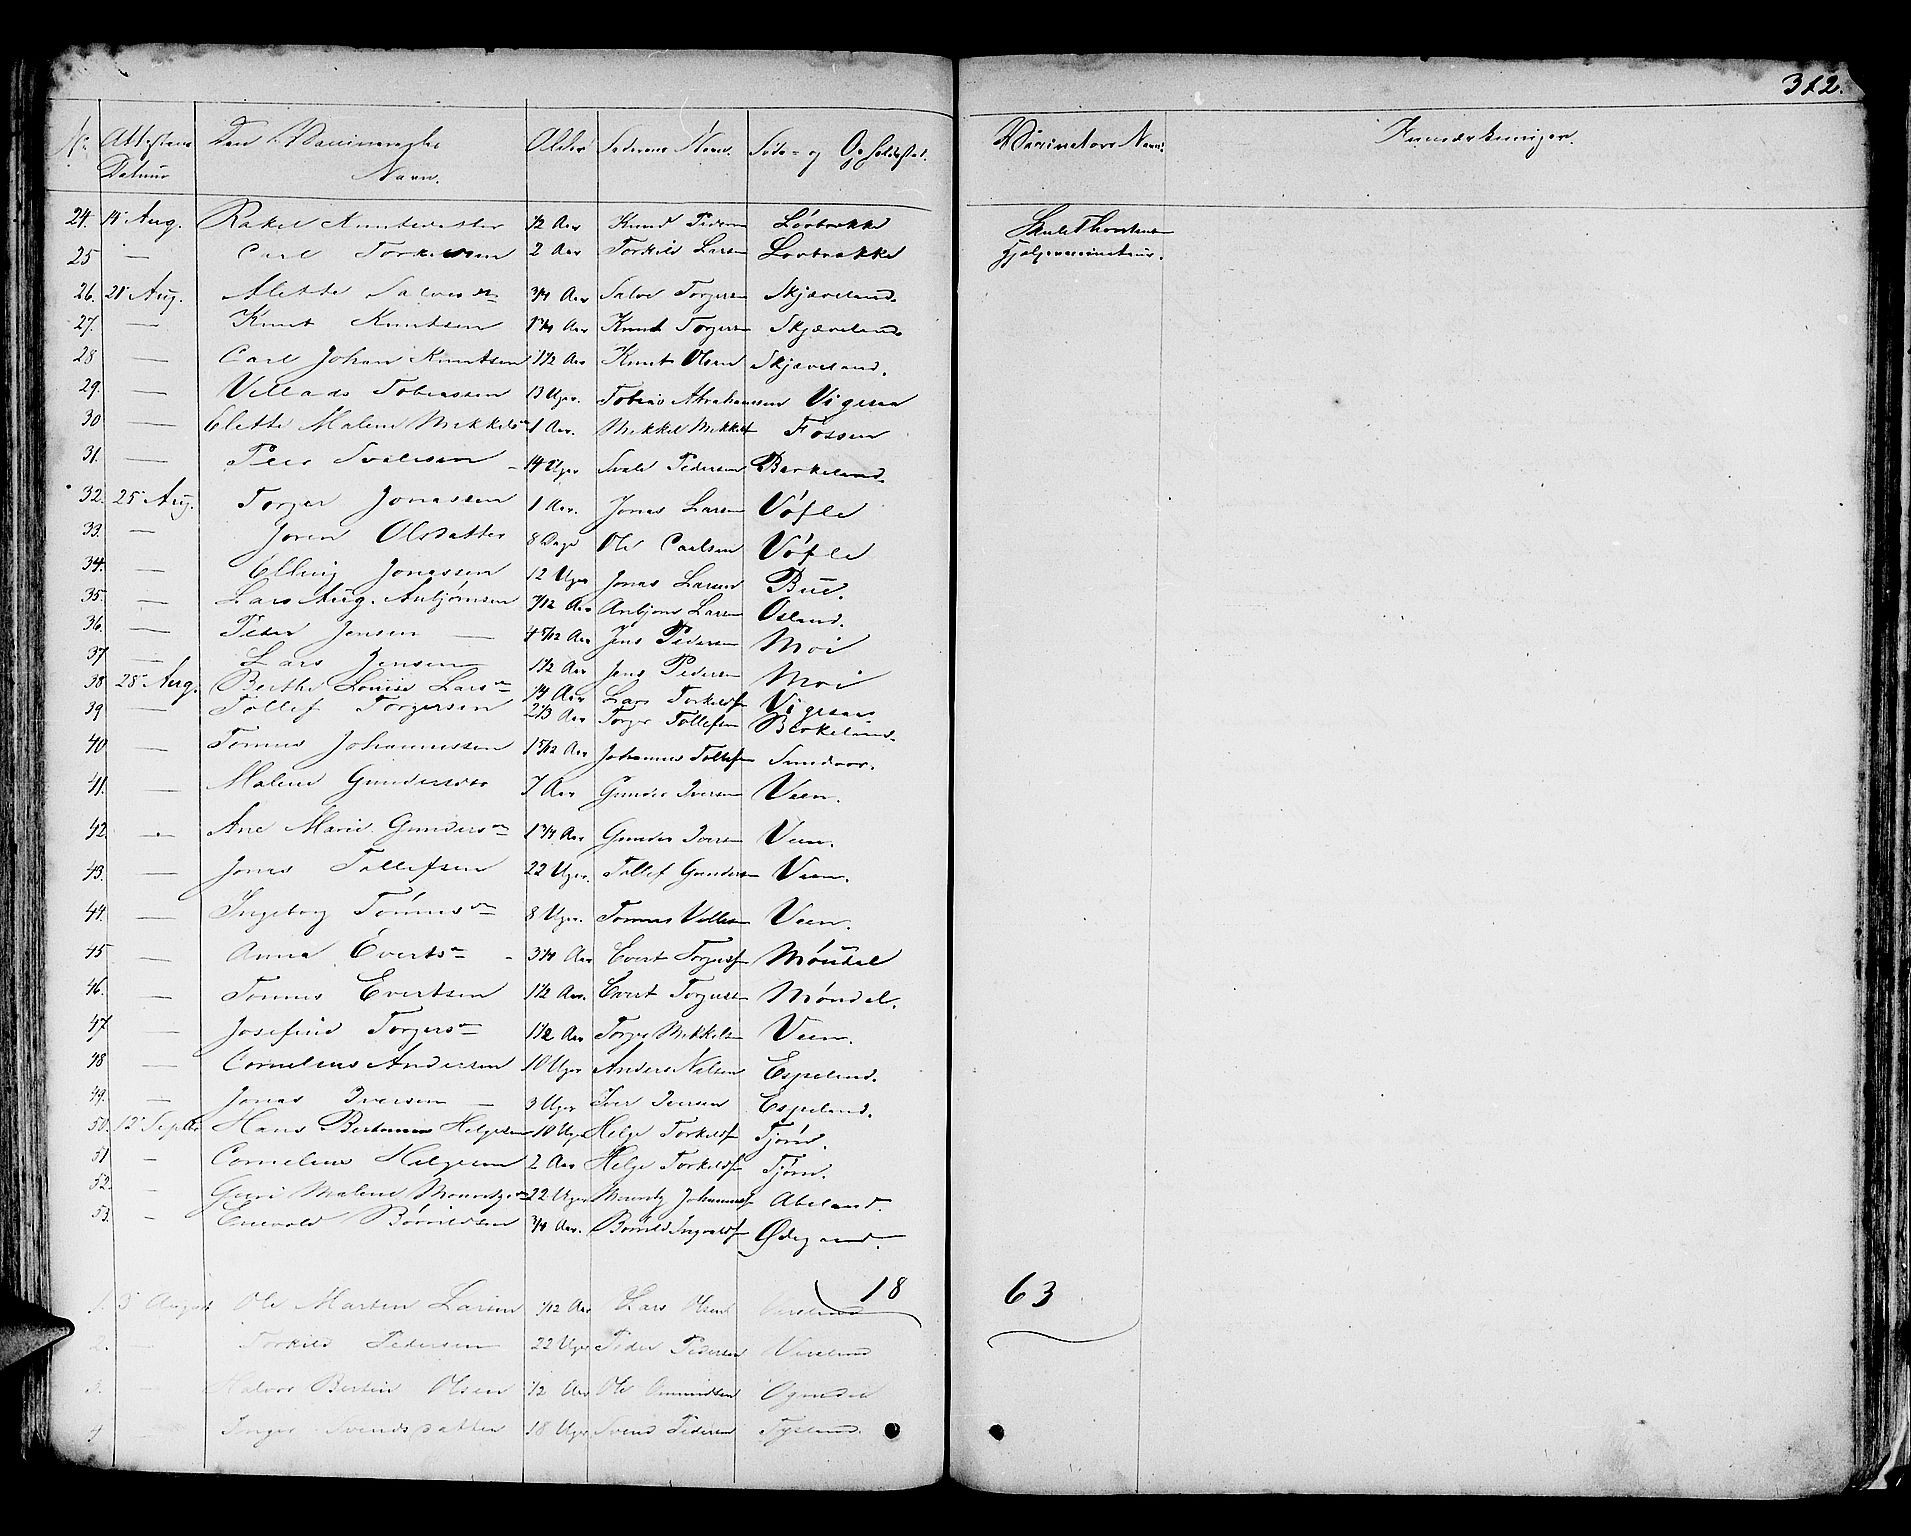 312.
No. Attestens Den Vaccineredes Alder Faderens Navn. Føde- og Opholdssted. Vaccineteurs Navn. Anmærkninger.
Datum Navn.
24. 14 Aug. Rakel Knutsdatter 1/2 Aar Knud Pedersen Løvbrække Skule Thorsten
25 — Carl Torkelsen 2 Aar Torkild Larsen Løvbrække Hjælpevaccinateur.
26. 21 Aug. Alette Salves 3/4 Aar Salve Torgersen Skjæveland.
27. — Knut Knutsen 1 3/4 Aar Knut Torgersen Skjæveland
28 — Carl Johan Knutsen 1 1/2 Aar Knut Olsen Skjæveland.
29. — Villads Tobiassen 13 Uger. Tobias Abrahamsen Vigesaa
30 — Elette Malene Mikkels 1 Aar. Mikkel Mikkels Fossen
31. — Peer Svalesen 14 Uger Svale Pedersen Berkeland.
32. 25 Aug. Torger Jonassen 1 Aar. Jonas Larsen Vøfle
33. — Joren Olsdatter 8 Dage Ole Carlsen Vøfle
34. — Elling Jonassen 12 Uger Jonas Larsen Bue.
35. — Lars Aug. Anbjørnsen 3/12 Aar Anbjørn Larsen Osland.
36. — Peder Jensen — 4 5/12 Aar Jens Pedersen Moi
37 — Lars Jensen 1 1/2 Aar Jens Pedersen Moi
38 28 Aug. Berthe Louise Lars 1/4 Aar Lars Torkelsf Vigesaa
39 — Tollef Torgersen 2 1/3 Aar Torger Tollefsen Berkeland.
40 — Tønnes Johannessen 1 5/12 Aar Johannes Tollefs Sundvor.
41. — Malene Gunders 7 Aar Gunder Iversen Veen.
42 — Ane Marie Gunders 1 3/4 Aar Gunder Iversen Veen.
43. — Jonas Tollefsen 22 Uger. Tollef Gundersen Veen.
44. — Ingeborg Tønnes 8 Uger. Tønnes Villesen Veen.
45 — Anna Everts 3 1/4 Aar Evert Torgers Møndal
46. — Tønnes Evertsen 1 1/2 Aar. Evert Torgersen Møndal.
47 — Josefine Torgers 1 1/2 Aar Torger Mikkelsen Veen.
48 — Cornelius Andersen 10 Uger Anders Nilsen Espeland.
49. — Jonas Iversen — 3 Uger Iver Iversen Espeland.
50. 12 Septbr Hans Bertinius Helgesen 10 Uger Helge Torkelsf Tjørn.
51 — Cornelius Helgesen 2 Aar Helge Torkelsf Tjørn.
52. — Guri Malene Mouritzs 22 Uger Mouritz Johannes Abeland.
53. — Enevold Børrildsen 3/4 Aar. Børrild Ingvalds Ødegaard.
18 63
1. 5 August Ole Martin Larsen 7/12 Aar Lars Olsen
2. — Torkild Pedersen 22 Uger Peder Pedersen
3. — Halvor Bertin Olsen 1/2 Aar Ole Ommundsen
4 — Inger Svendsdatter 18 Uger Svend Pedersen Tysland.